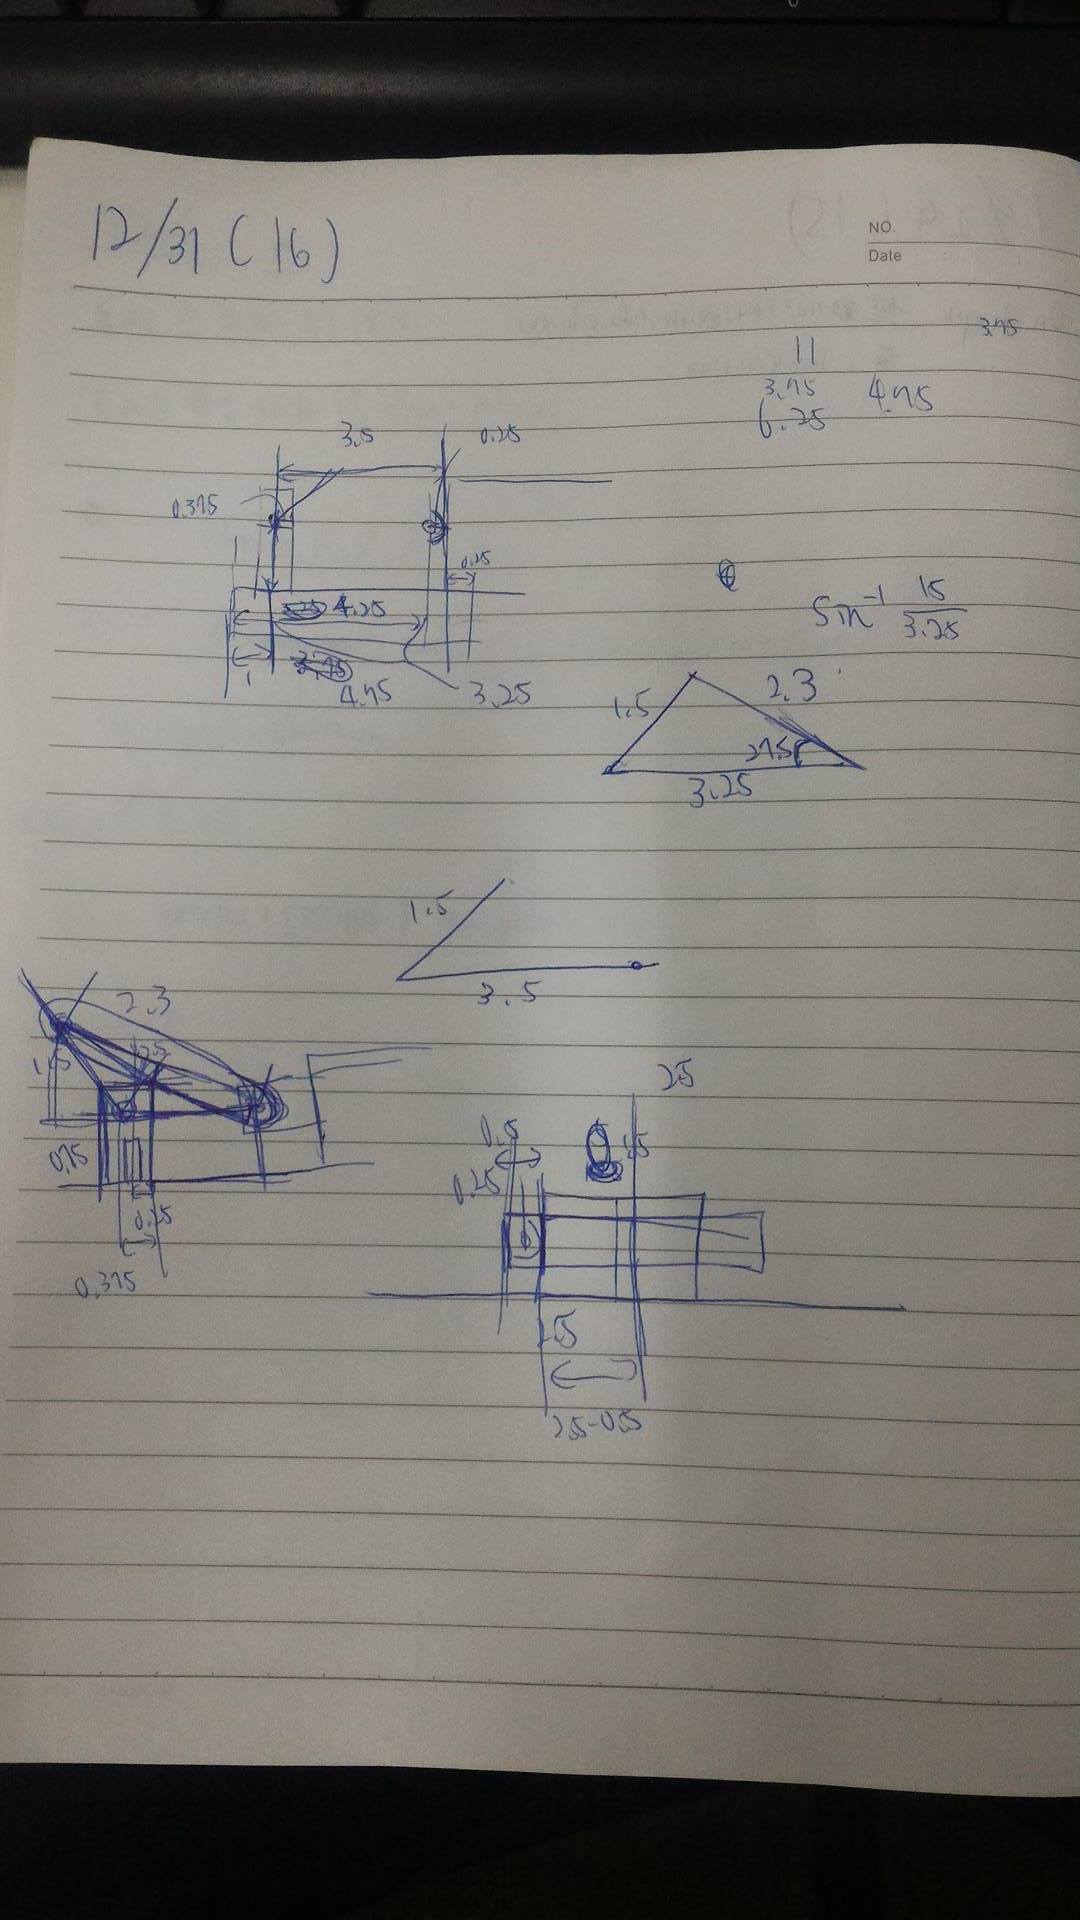 12/31 (16)
NO.
Date
3.75
11
3.75
4.75
6.25
3.5
0.25
0.375
0.25
4.25
1
3.75
4.75
3.25
sin⁻¹ 15/3.25
1.5
2.3
27.5
3.25
1.5
3.5
2.3
1.5
0.75
0.25
0.375
25
0.5
1.5
0.25
2.5-0.5